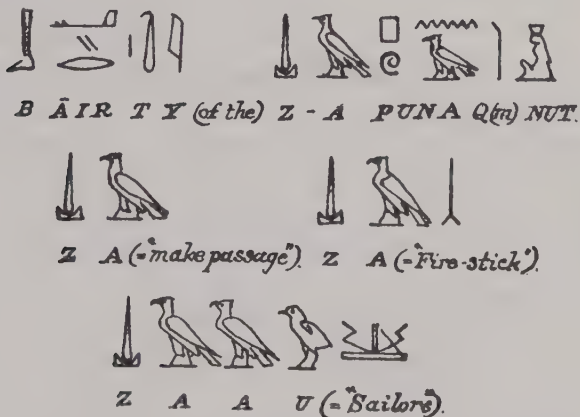 B ĀIR T Y (of the) Z - A PUNA Q(m) NUT.
Z A (="make passage"). Z A (="Fire-stick").
Z A A U (="Sailors").